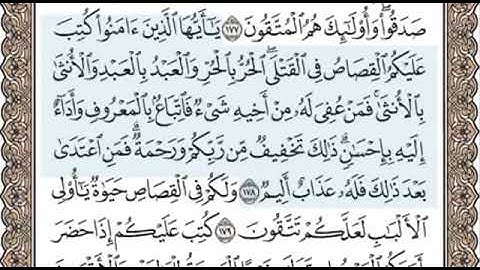 صَدَقُوا۟ ۖ وَأُو۟لَـٰٓئِكَ هُمُ ٱلْمُتَّقُونَ ١٧٧ يَـٰٓأَيُّهَا ٱلَّذِينَ ءَامَنُوا۟ كُتِبَ
عَلَيْكُمُ ٱلْقِصَاصُ فِى ٱلْقَتْلَى ۖ ٱلْحُرُّ بِٱلْحُرِّ وَٱلْعَبْدُ بِٱلْعَبْدِ وَٱلْأُنثَىٰ
بِٱلْأُنثَىٰ ۚ فَمَنْ عُفِىَ لَهُۥ مِنْ أَخِيهِ شَىْءٌ فَٱتِّبَاعٌۢ بِٱلْمَعْرُوفِ وَأَدَآءٌ
إِلَيْهِ بِإِحْسَـٰنٍ ۗ ذَٰلِكَ تَخْفِيفٌ مِّن رَّبِّكُمْ وَرَحْمَةٌ ۗ فَمَنِ ٱعْتَدَىٰ
بَعْدَ ذَٰلِكَ فَلَهُۥ عَذَابٌ أَلِيمٌ ١٧٨ وَلَكُمْ فِى ٱلْقِصَاصِ حَيَوٰةٌ يَـٰٓأُو۟لِى
ٱلْأَلْبَـٰبِ لَعَلَّكُمْ تَتَّقُونَ ١٧٩ كُتِبَ عَلَيْكُمْ إِذَا حَضَرَ